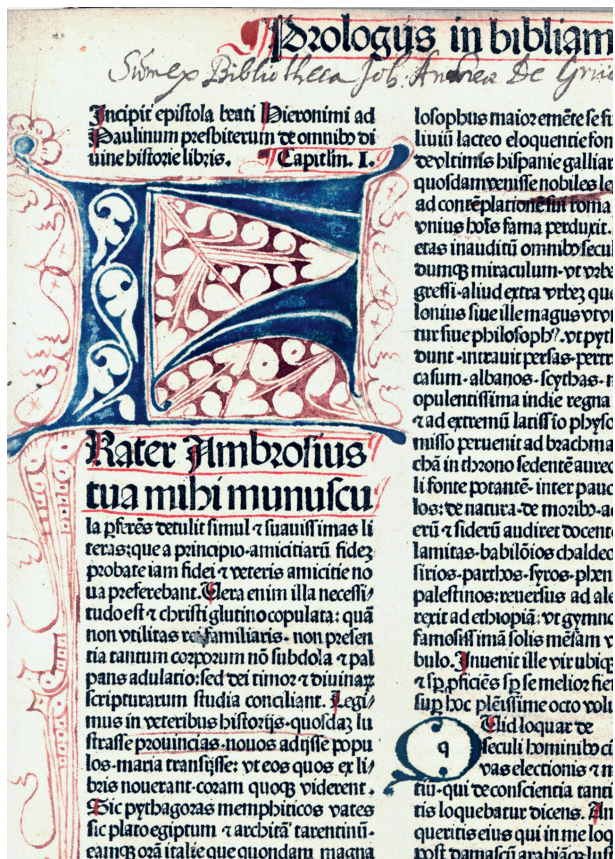 Prologus in bibliam
Sum ex Bibliotheca Joh. Andreæ De
Incipit epistola beati Hieronimi ad
Paulinum presbiterum de omnibꝰ di
uine historie libris. Capitlm. I.
FRater Ambrosius
tua mihi munuscu
la ꝑferēs detulit simul ⁊ suauissimas li
teras: que a principio amicitiarū fidez
probate iam fidei ⁊ veteris amicitie no
ua preferebant. Uera enim illa necessi⸗
tudo est ⁊ christi glutino copulata: quā
non vtilitas rei familiaris· non presen
tia tantum corporum nō subdola ⁊ pal
pans adulatio: sed dei timor ⁊ diuinaꝝ
scripturarum studia conciliant. Legi⸗
mus in veteribus historijs· quosdaz lu
strasse prouincias· nouos adijsse popu
los· maria transijsse: vt eos quos ex li⸗
bris nouerant· coram quoqꝫ viderent.
Sic pythagoras memphiticos vates
sic plato egiptum ⁊ architā tarentinū·
eamqꝫ orā italie que quondam magna
losophus maior
liuiū lacteo eloquentie fon
de vltimis hispanie galliar
quosdam venisse nobiles
ad contēplationē sui roma
vnius hoīs fama perduxit.
etas inauditū omnibꝰ secul
dumqꝫ miraculum· vt vrbe
gressi· aliud extra vrbez que
lonius siue ille magus vt
tur siue philosophꝰ· vt pyt
dunt· intrauit persas·
casum· albanos· scythas·
opulentissima indie regna
⁊ ad extremū latissīo physo
misso peruenit ad brachma
chā in throno sedentē aureo
li fonte potantē· inter pauc
los: de natura· de moribꝰ·
erū ⁊ siderū audiret docente
lamitas· babilōios chaldeo
sirios· parthos· syros· phen
palestinos: reuersus ad ale
rexit ad ethiopiā: vt gymno
famosissimā solis mēsam v
bulo. Inuenit ille vir ubiqꝫ
⁊ sꝑ ꝓficiēs sꝑ se melior fie
Suꝑ hoc plēissime octo volu
q
Uid loquar de
seculi hominibꝰ
vas electionis ⁊ m
tiū· qui de conscientia tanti
tis loquebatur dicens. An
queritis eius qui in me loq
post damascū arabiāqꝫ lus